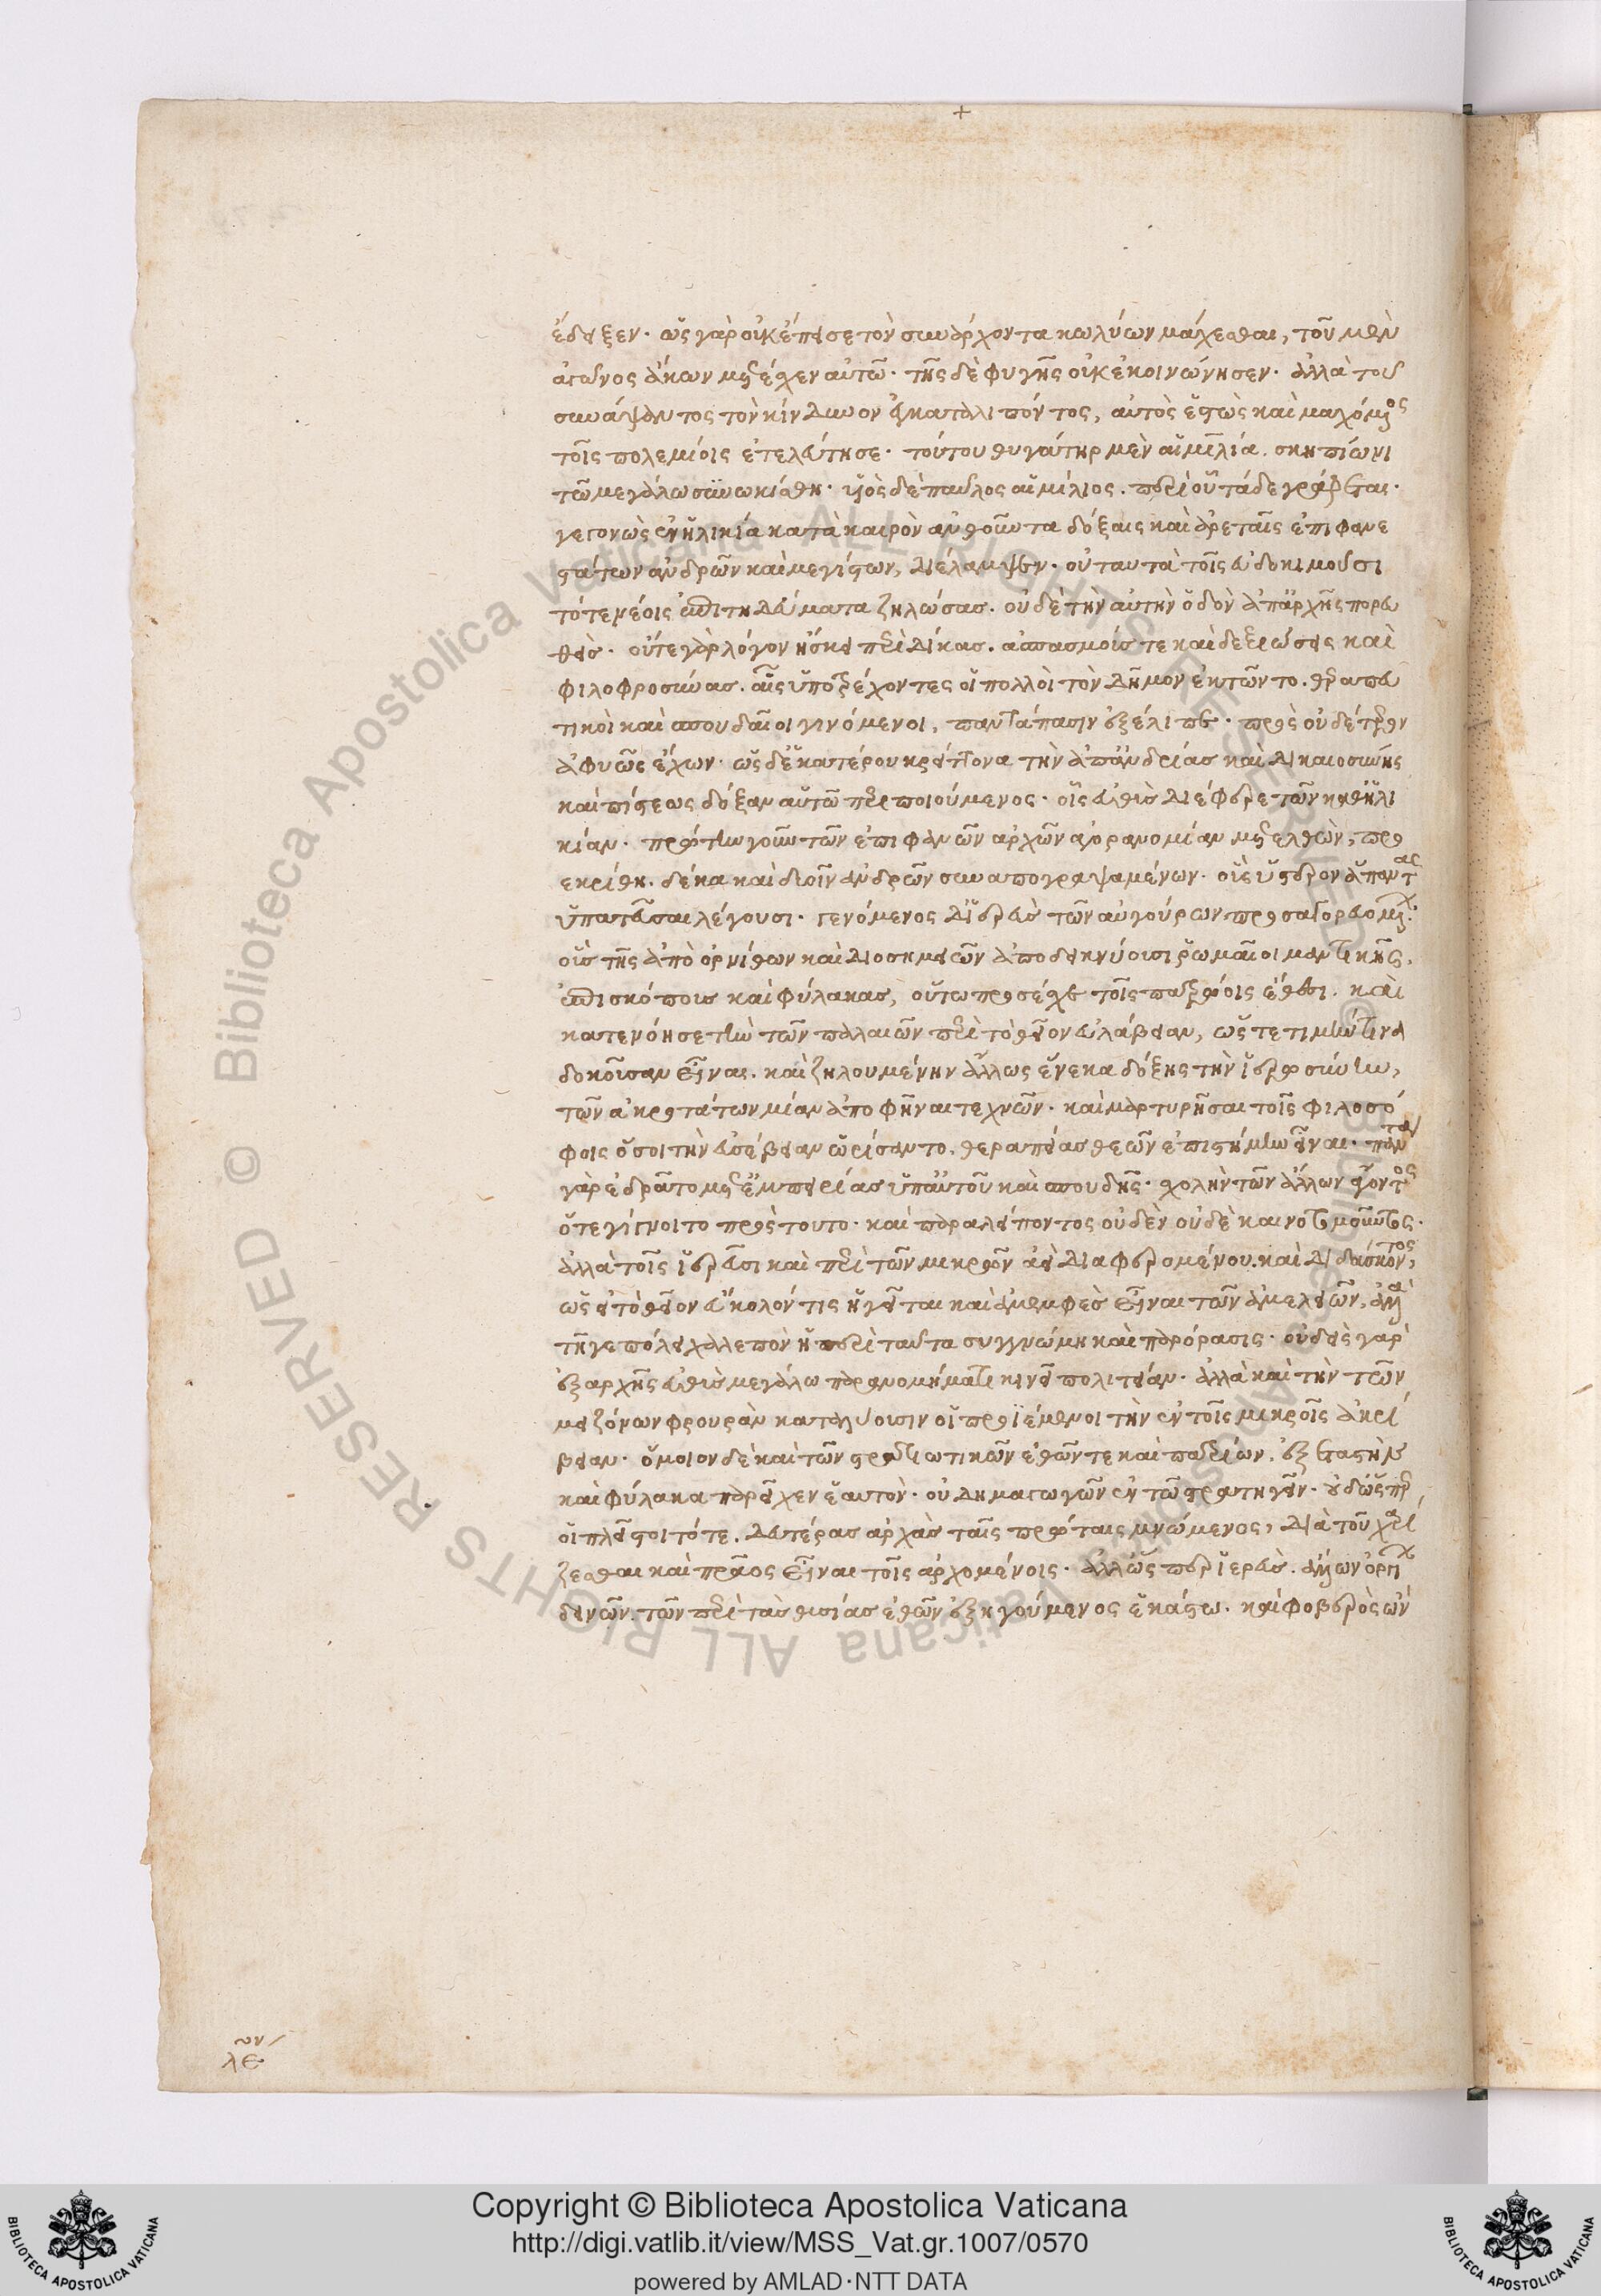 +
ἔδειξεν· ὡς γὰρ οὐκ ἔπεισε τὸν συνάρχοντα κωλύων μάχεσθαι, τοῦ μὲν
ἀγῶνος ἄκων μετέσχεν αὐτῶ· τῆς δὲ φυγῆς οὐκ ἐκοινώνησεν· ἀλλὰ τοῦ
συνάψαντος τὸν κίνδυνον ἐγκαταλιπόντος, αὐτὸς ἑστὼς καὶ μαχόμενος
τοῖς πολεμίοις ἐτελεύτησε· τούτου θυγάτηρ μὲν αἰμιλία. σκηπίωνι
τῶ μεγάλω συνωκίσθη· υἱὸς δὲ παῦλος αἰμίλιος. περὶ οὗ τάδε γράφεται·
γεγονὼς ἐν ἡλικία κατὰ καιρὸν ἀνθοῦντα δόξαις καὶ ἀρεταῖς ἐπιφανε
στάτων ἀνδρῶν καὶ μεγίστων, διέλαμψεν· οὐ ταυτὰ τοῖς εὐδοκιμοῦσι
τότε νέοις ἐπιτηδεύματα ζηλώσας. οὐδὲ τὴν αὐτὴν ὁδὸν ἀπ' ἀρχῆς πορευ
θείς· οὔτε γὰρ λόγον ἤσκει περὶ δίκας. ἀσπασμούς τε καὶ δεξιώσεις καὶ
φιλοφροσύνας. αἷς ὑποτρέχοντες οἱ πολλοὶ τὸν δῆμον ἐκτῶντο. θεραπευ
τικοὶ καὶ σπουδαῖοι γινόμενοι, παντάπασιν ἐξέλιπε· πρὸς οὐδέτερον
ἀφυῶς ἔχων· ὡς δ' ἑκατέρου κρείττονα τὴν ἀπ' ἀνδρίας καὶ δικαιοσύνης
καὶ πίστεως δόξαν αὑτῶ περιποιούμενος· οἷς εὐθὺς διέφερε τῶν καθ' ἡλι
κίαν· πρώτην γοῦν τῶν ἐπιφανῶν ἀρχῶν ἀγορανομίαν μετελθὼν, προ
εκρίθη. δέκα καὶ δυοῖν ἀνδρῶν συναπογραψαμένων· οὓς ὕστερον ἅπαντας
ὑπατεῦσαι λέγουσι· γενόμενος δ' ἱερεὺς τῶν αὐγούρων προσαγορευομένων·
οὓς τῆς ἀπὸ ὀρνίθων καὶ διοσημειῶν ἀποδεικνύουσι ῥωμαῖοι μαντικῆς,
ἐπισκόπους καὶ φύλακας, οὕτω προσέσχε τοῖς πατρώοις ἔθεσι. καὶ
κατενόησε τὴν τῶν παλαιῶν περὶ τὸ θεῖον εὐλάβειαν, ὥστε τιμήν τινα
δοκοῦσαν εἶναι. καὶ ζηλουμένην ἄλλως ἕνεκα δόξης τὴν ἱερωσύνην,
τῶν ἀκροτάτων μίαν ἀποφῆναι τεχνῶν· καὶ μαρτυρῆσαι τοῖς φιλοσό
φοις ὅσοι τὴν εὐσέβειαν ὡρίσαντο. θεραπείας θεῶν ἐπιστήμην εἶναι· πάντα
γὰρ ἐδρᾶτο μετ' ἐμπειρίας ὑπ' αὐτοῦ καὶ σπουδῆς· σχολὴν τῶν ἄλλων ἄγοντος
ὅτε γίγνοιτο πρὸς τούτο· καὶ παραλείποντος οὐδὲν οὐδὲ καινοτομοῦντος·
ἀλλὰ τοῖς ἱερεῦσι καὶ περὶ τῶν μικρῶν ἀεὶ διαφερομένου. καὶ διδάσκοντος,
ὡς εἰ τὸ θεῖον εὔκολόν τις ἡγεῖται καὶ ἀμεμφὲς εἶναι τῶν ἀμελειῶν, ἀλλὰ
τῆ γε πόλει χαλεπὸν ἡ περὶ ταῦτα συγγνώμη καὶ παρόρασις· οὐδεὶς γὰρ
ἐξ ἀρχῆς εὐθὺς μεγάλω παρανομήματι κινεῖ πολιτείαν· ἀλλὰ καὶ τὴν τῶν
μειζόνων φρουρὰν καταλύουσιν οἱ προϊέμενοι τὴν ἐν τοῖς μικροῖς ἀκρί
βειαν· ὅμοιον δὲ καὶ τῶν στρατιωτικῶν ἐθῶν τε καὶ πατρίων. ἐξεταστὴν
καὶ φύλακα παρεῖχεν ἑαυτὸν· οὐ δημαγωγῶν ἐν τῶ στρατηγεῖν· οὐδ' ὥσπερ
οἱ πλεῖστοι τότε. δευτέρας ἀρχὰς ταῖς πρώταις μνώμενος, διὰ τοῦ χαρί
ζεσθαι καὶ πρᾶος εἶναι τοῖς ἀρχομένοις· ἀλλ' ὥσπερ ἱερεὺς. ἄλλων ὀργίων
δεινῶν. τῶν περὶ τὰς θυσίας ἐθῶν ἐξηγούμενος ἑκάστω. καὶ φοβερὸς ὢν
λε
ων
Copyright © Biblioteca Apostolica Vaticana
http://digi.vatlib.it/view/MSS_Vat.gr.1007/0570
powered by AMLAD·NTT DATA
BIBLIOTECA APOSTOLICA VATICANA
BIBLIOTECA APOSTOLICA VATICANA
© Biblioteca Apostolica Vaticana ALL RIGHTS RESERVED
© Biblioteca Apostolica Vaticana ALL RIGHTS RESERVED